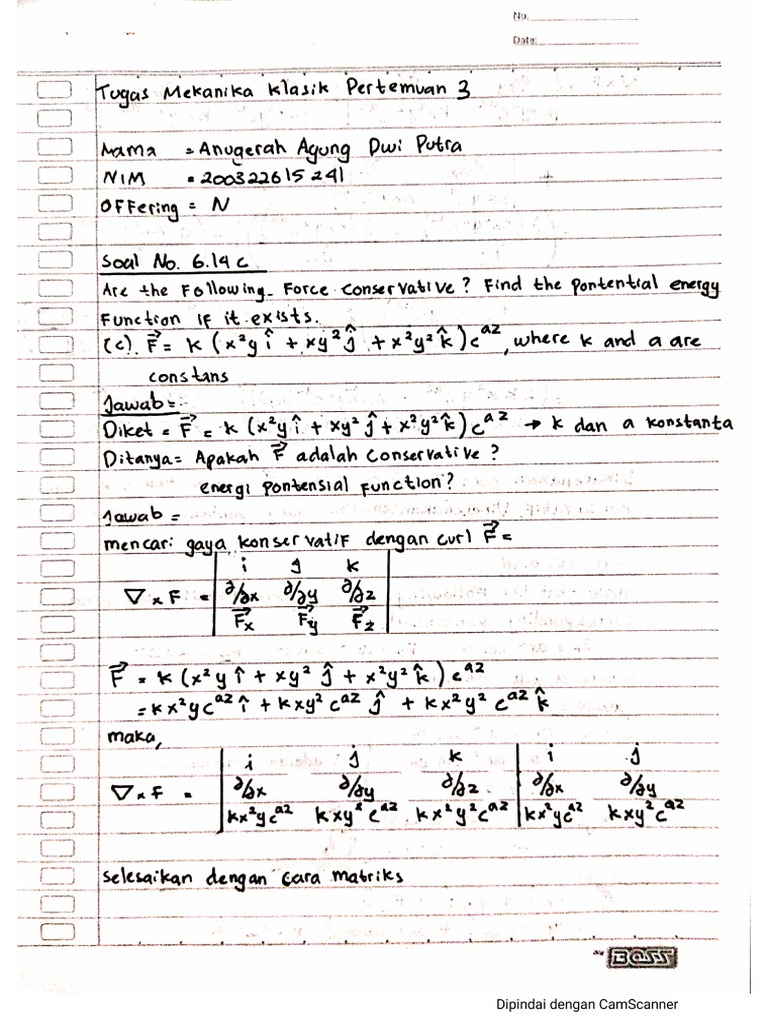 No.
Date:
Tugas Mekanika Klasik Pertemuan 3
Nama = Anugerah Agung Dwi Putra
NIM = 200322615241
Offering = N
Soal No. 6.14 c
Are the Following Force conservative ? Find the pontential energy
Function if it exists.
(c). F⃗ = k (x²y î + xy² ĵ + x²y² k̂) e^az, where k and a are
constans
Jawab =
Diket = F⃗ = k (x²y î + xy² ĵ + x²y² k̂) e^az → k dan a konstanta
Ditanya = Apakah F⃗ adalah Conservative ?
energi pontensial function ?
Jawab =
mencari gaya konservatif dengan curl F⃗ =
i j k
∇ × F = | ∂/∂x ∂/∂y ∂/∂z |
F⃗x F⃗y F⃗z
F⃗ = k (x²y î + xy² ĵ + x²y² k̂) e^az
= kx²y e^az î + kxy² e^az ĵ + kx²y² e^az k̂
maka,
i j k | i j
∇ × F = | ∂/∂x ∂/∂y ∂/∂z | ∂/∂x ∂/∂y
kx²y e^az kxy² e^az kx²y² e^az | kx²y e^az kxy² e^az
selesaikan dengan cara matriks
BOSS
Dipindai dengan CamScanner